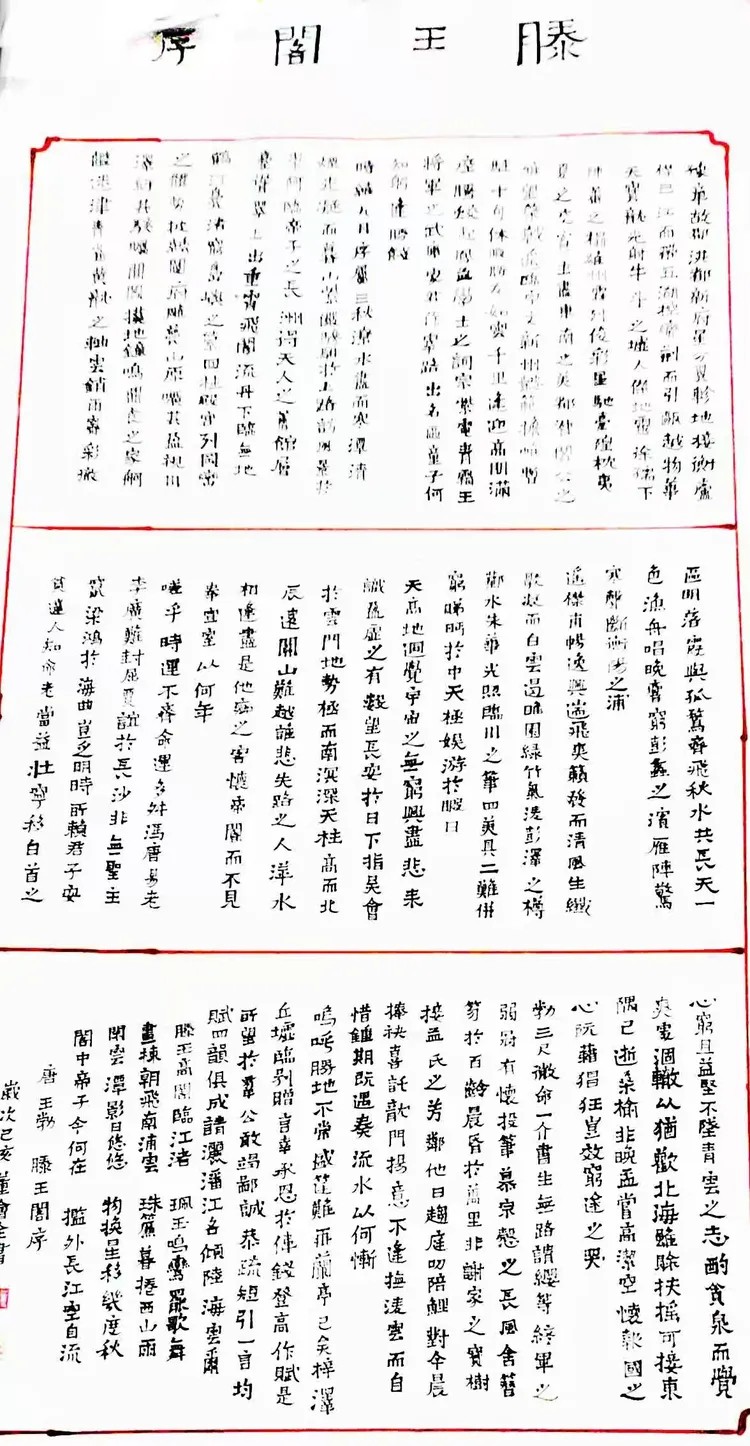 滕王閣序
豫章故郡洪都新府星分翼軫地接衡廬
襟三江而帶五湖控蠻荊而引甌越物華
天寶龍光射牛斗之墟人傑地靈徐孺下
陳蕃之榻雄州霧列俊彩星馳臺隍枕夷
夏之交賓主盡東南之美都督閻公之
雅望棨戟遙臨宇文新州懿範襜帷暫
駐十旬休暇勝友如雲千里逢迎高朋滿
座騰蛟起鳳孟學士之詞宗紫電青霜王
將軍之武庫家君作宰路出名區童子何
知躬逢勝餞
時維九月序屬三秋潦水盡而寒潭清
煙光凝而暮山紫儼驂騑於上路訪風景於
崇阿臨帝子之長洲得天人之舊館層
巒聳翠上出重霄飛閣流丹下臨無地
鶴汀鳧渚窮島嶼之縈回桂殿蘭宮列岡巒
之體勢披繡闥俯雕甍山原曠其盈視川
澤紆其駭矚閭閻撲地鐘鳴鼎食之家舸
艦迷津青雀黃龍之舳雲銷雨霽彩徹
區明落霞與孤鶩齊飛秋水共長天一
色漁舟唱晚響窮彭蠡之濱雁陣驚
寒聲斷衡陽之浦
遙襟甫暢逸興遄飛爽籟發而清風生纖
歌凝而白雲遏睢園綠竹氣淩彭澤之樽
鄴水朱華光照臨川之筆四美具二難併
窮睇眄於中天極娛游於暇日
天高地迥覺宇宙之無窮興盡悲來
識盈虛之有數望長安於日下指吳會
於雲門地勢極而南溟深天柱高而北
辰遠關山難越誰悲失路之人萍水
相逢盡是他鄉之客懷帝閽而不見
奉宣室以何年
嗟乎時運不齊命運多舛馮唐易老
李廣難封屈賈誼於長沙非無聖主
竄梁鴻於海曲豈乏明時所賴君子安
貧達人知命老當益壯寧移白首之
心窮且益堅不墜青雲之志酌貪泉而覺
爽處涸轍以猶歡北海雖賒扶搖可接東
隅已逝桑榆非晚孟嘗高潔空懷報國之
心阮藉猖狂豈效窮途之哭
勃三尺微命一介書生無路請纓等終軍之
弱冠有懷投筆慕宗愨之長風舍簪
笏於百齡晨昏於萬里非謝家之寶樹
接孟氏之芳鄰他日趨庭叨陪鯉對今晨
捧袂喜託龍門楊意不逢撫淩雲而自
惜鍾期既遇奏流水以何慚
嗚呼勝地不常盛筵難再蘭亭已矣梓澤
丘墟臨別贈言幸承恩於偉餞登高作賦是
所望於羣公敢竭鄙誠恭疏短引一言均
賦四韻俱成請灑潘江各傾陸海雲爾
滕王高閣臨江渚 珮玉鳴鸞罷歌舞
畫棟朝飛南浦雲 珠簾暮捲西山雨
閒雲潭影日悠悠 物換星移幾度秋
閣中帝子今何在 檻外長江空自流
唐王勃 滕王閣序
歲次己亥 董會全書